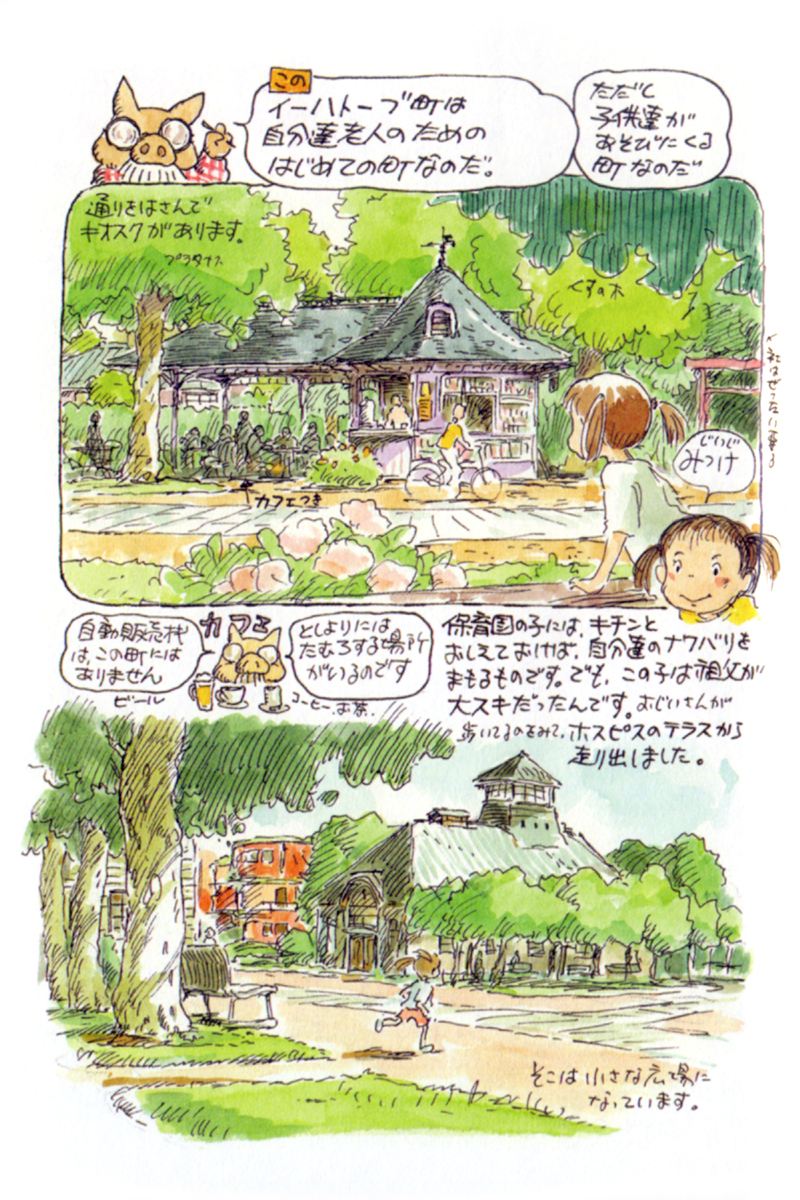 この
イーハトーブ町は
自分達老人のための
はじめての町なのだ。
ただし
子供達が
あそびにくる
町なのだ
通りをはさんで
キオスクがあります。
プラタナス
くすの木
じいじ
みつけ
カフェつき
カフェ
自動販売機
は、この町には
ありません
ビール
としよりには
たむろする場所
がいるのです
コーヒー.お茶.
保育園の子には、キチンと
おしえておけば、自分達のナワバリを
まもるものです。でも、この子は祖父が
大スキだったんです。おじいさんが
歩いてるのをみて、ホスピスのテラスから
走り出しました。
そこは小さな広場に
なっています。